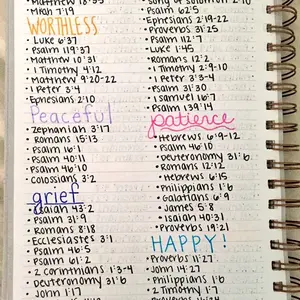 Matthew 18:35
Mrah 7:19
WORTHLESS
Luke 6:37
Psalm 119:37
Matthew 10:31
1 Timothy 4:12
Matthew 9:20-22
1 Peter 3:4
Ephesians 2:10
Peaceful
Zephaniah 3:17
Romans 15:13
Psalm 16:1
Psalm 40:11
Psalm 46:10
Colossians 3:2
grief
Isaiah 43:2
Psalm 31:9
Romans 8:18
Ecclesiastes 3:1
Psalm 46:5
Psalm 61:2
2 Corinthians 1:3-4
Deuteronomy 31:6
John 1:17
Song of Solomon 2:10
Psalm 62:5
Ephesians 2:19-22
Proverbs 31:25
Psalm 112:7
Luke 1:45
Romans 12:2
1 Timothy 2:9-10
1 Peter 3:3-4
Psalm 31:30
1 Samuel 16:7
Psalm 139:14
patience
Hebrews 6:9-12
Psalm 46:10
Deuteronomy 31:6
Romans 12:12
Hebrews 6:15
Philippians 1:6
Galatians 6:9
James 5:8
Isaiah 40:31
Proverbs 19:21
HAPPY!
Proverbs 11:27
John 14:27
Philippians 1:6
2 Timothy 1:7